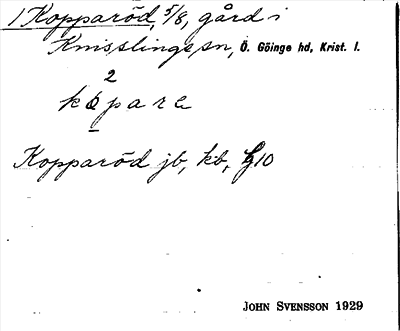 1 Kopparöd, 5/8, gård i
Knisslinge sn, Ö. Göinge hd, Krist. l.
2
Kopparöd jb, kb, G10
JOHN SVENSSON 1929